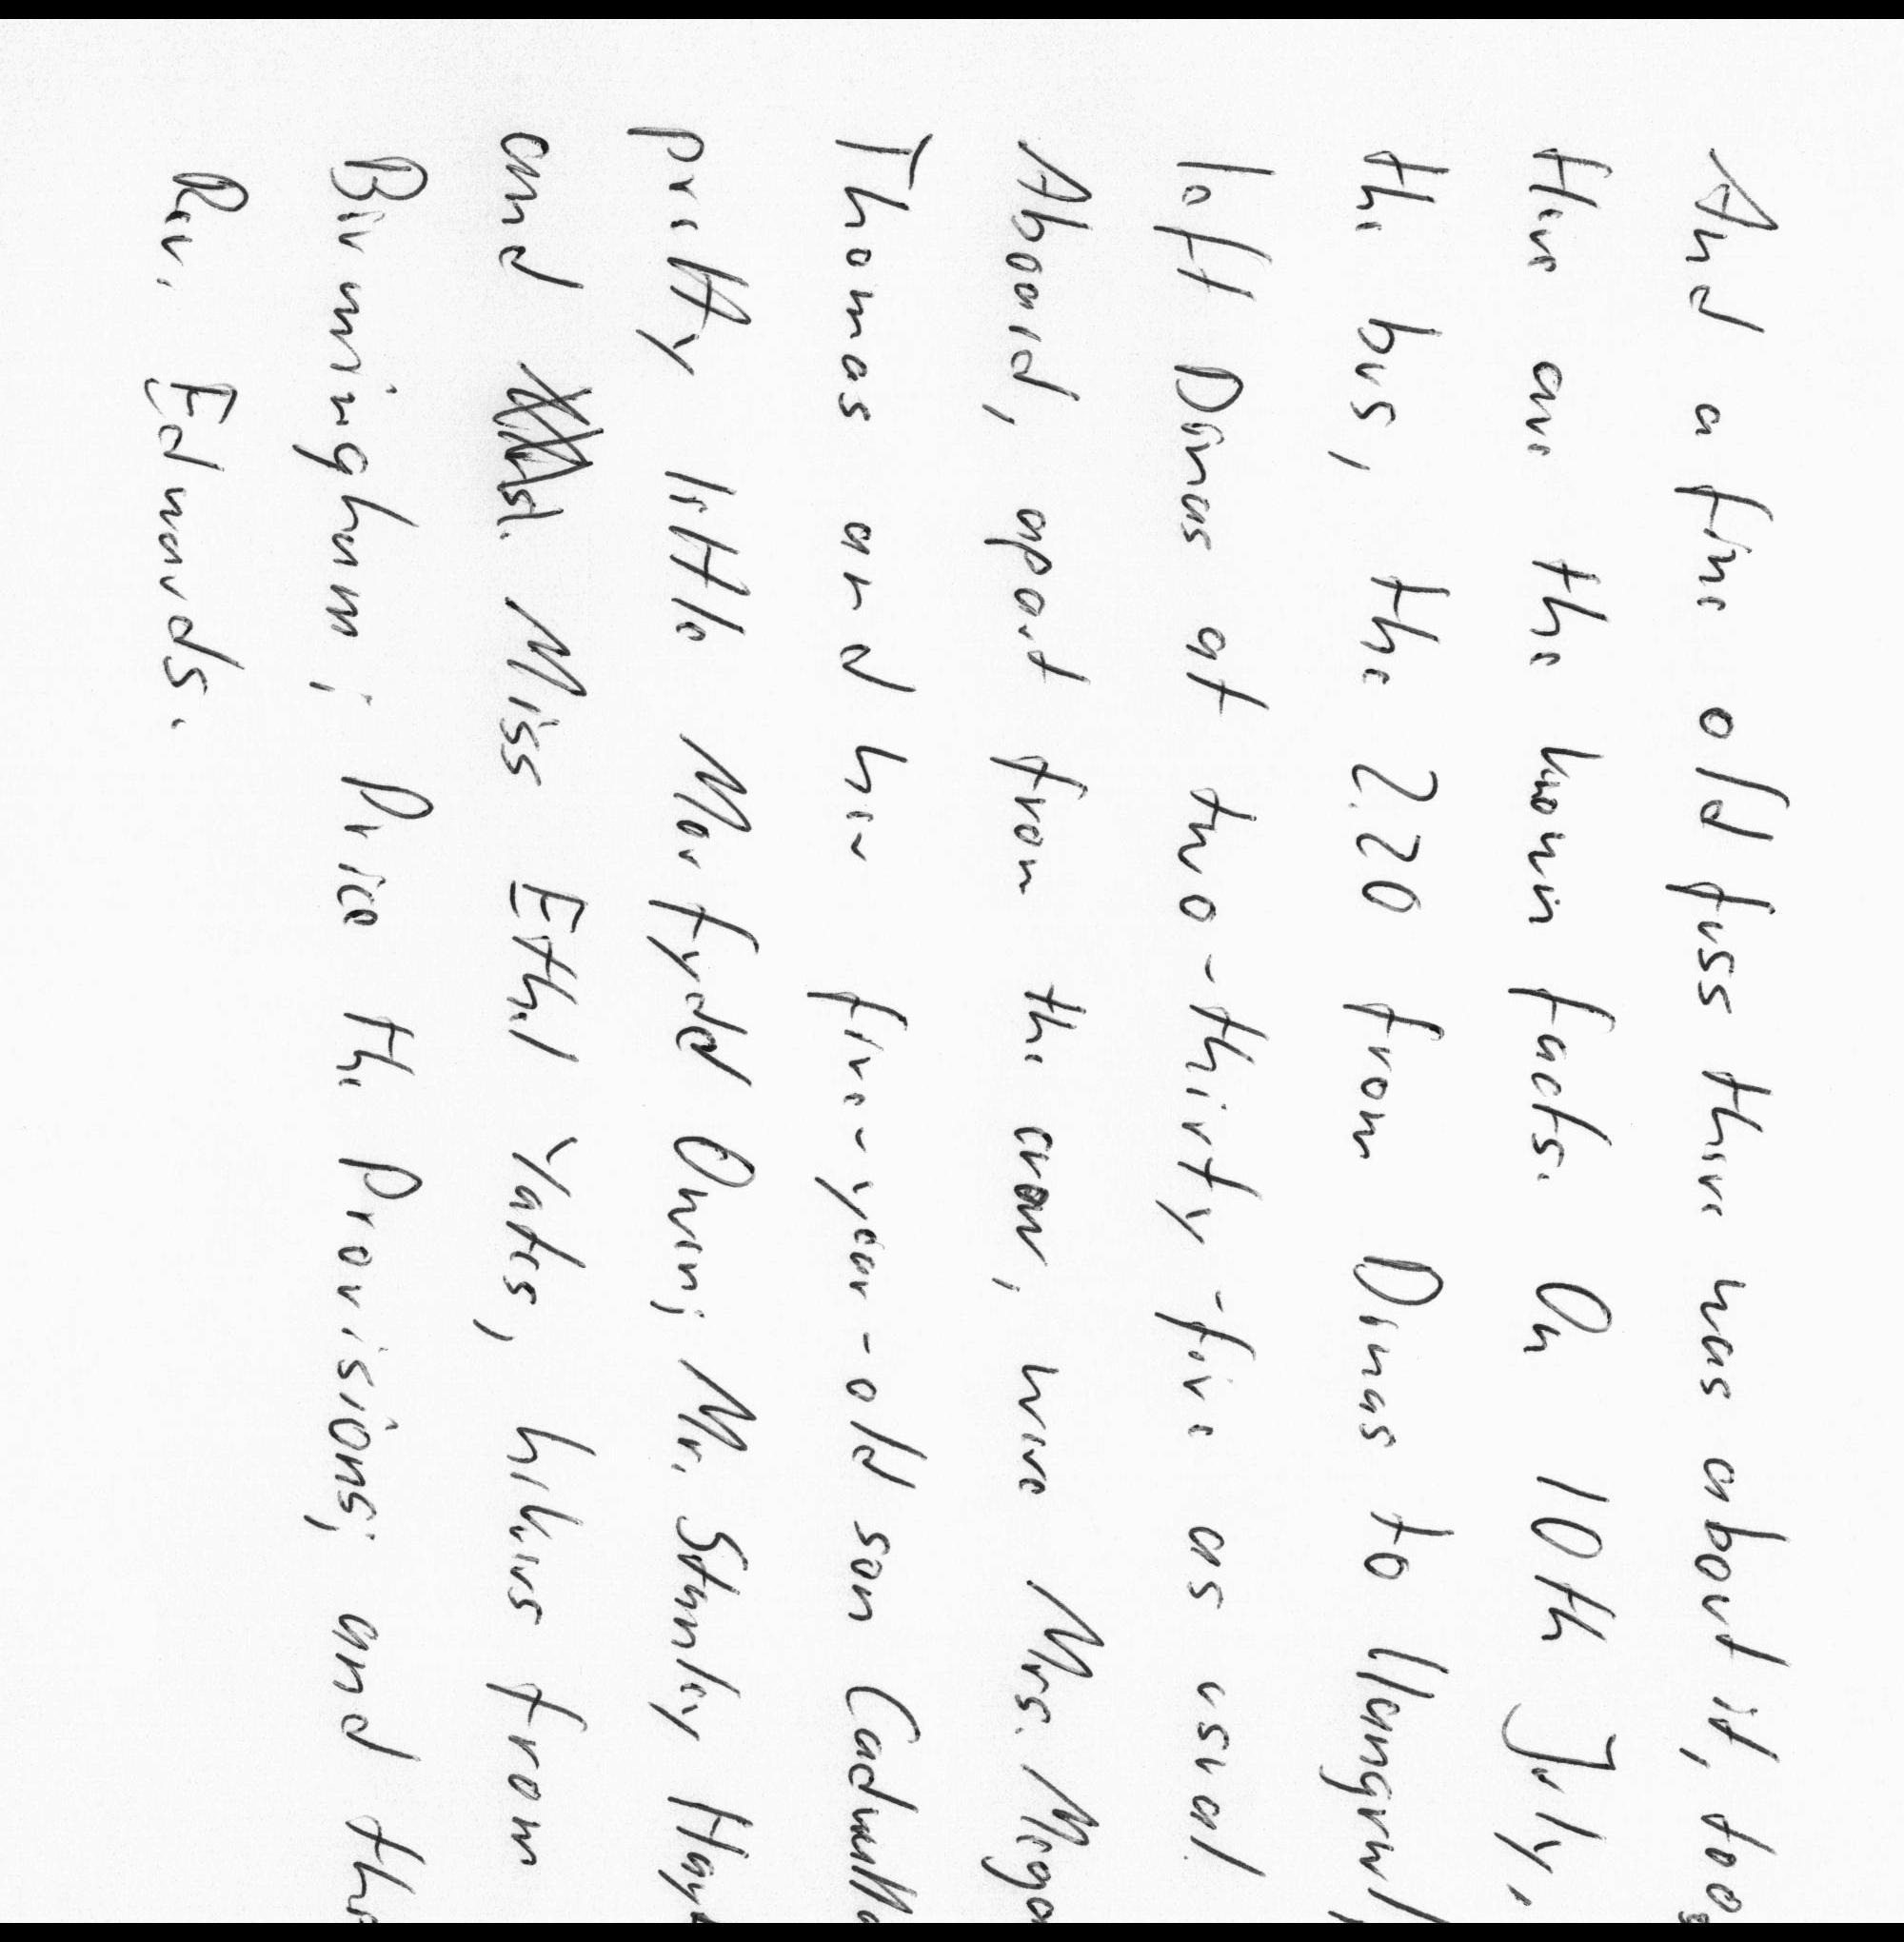 And a fine old fuss there was about it, too.
Here are the main facts. On 10th July,
the bus, the 2.20 from Dinas to Llangrwl,
left Dinas at two-thirty-five as usual.
Aboard, apart from the crew, were Mrs. Megan
Thomas and her five-year-old son Cadwalla
pretty little Morfydd Owen; Mr. Stanley
and Miss Ethel Yates, hikers from
Birmingham; Price the Provisions; and the
Rev. Edwards.